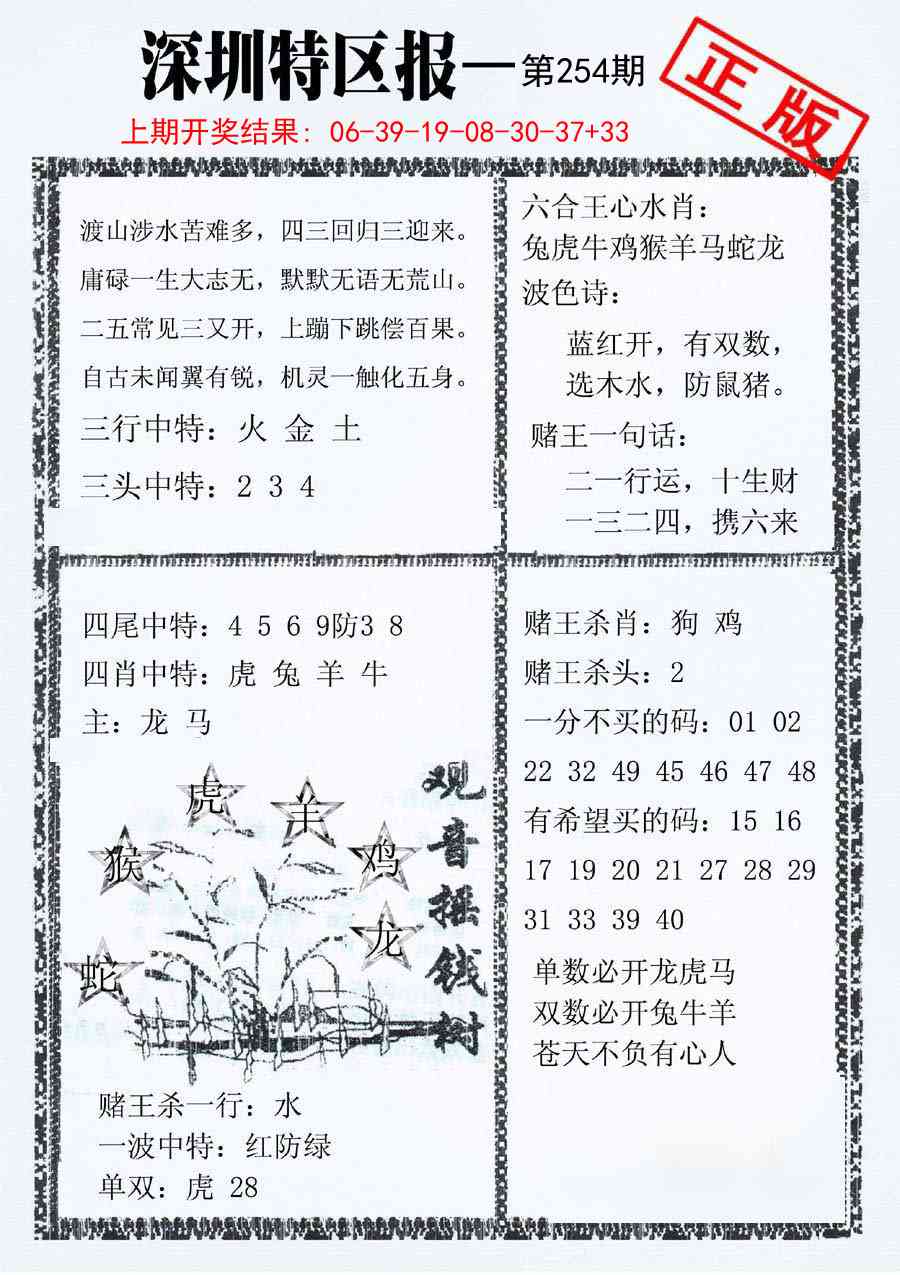 深圳特区报—第254期
正版
上期开奖结果：06-39-19-08-30-37+33
渡山涉水苦难多，四三回归三迎来。
庸碌一生大志无，默默无语无荒山。
二五常见三又开，上蹦下跳偿百果。
自古未闻翼有锐，机灵一触化五身。
三行中特：火 金 土
三头中特：2 3 4
六合王心水肖：
兔虎牛鸡猴羊马蛇龙
波色诗：
蓝红开，有双数，
选木水，防鼠猪。
赌王一句话：
二一行运，十生财
一三二四，携六来
四尾中特：4 5 6 9防3 8
四肖中特：虎 兔 羊 牛
主：龙 马
虎
羊
猴
鸡
龙
蛇
观音摇钱树
赌王杀一行：水
一波中特：红防绿
单双：虎 28
赌王杀肖：狗 鸡
赌王杀头：2
一分不买的码：01 02
22 32 49 45 46 47 48
有希望买的码：15 16
17 19 20 21 27 28 29
31 33 39 40
单数必开龙虎马
双数必开兔牛羊
苍天不负有心人